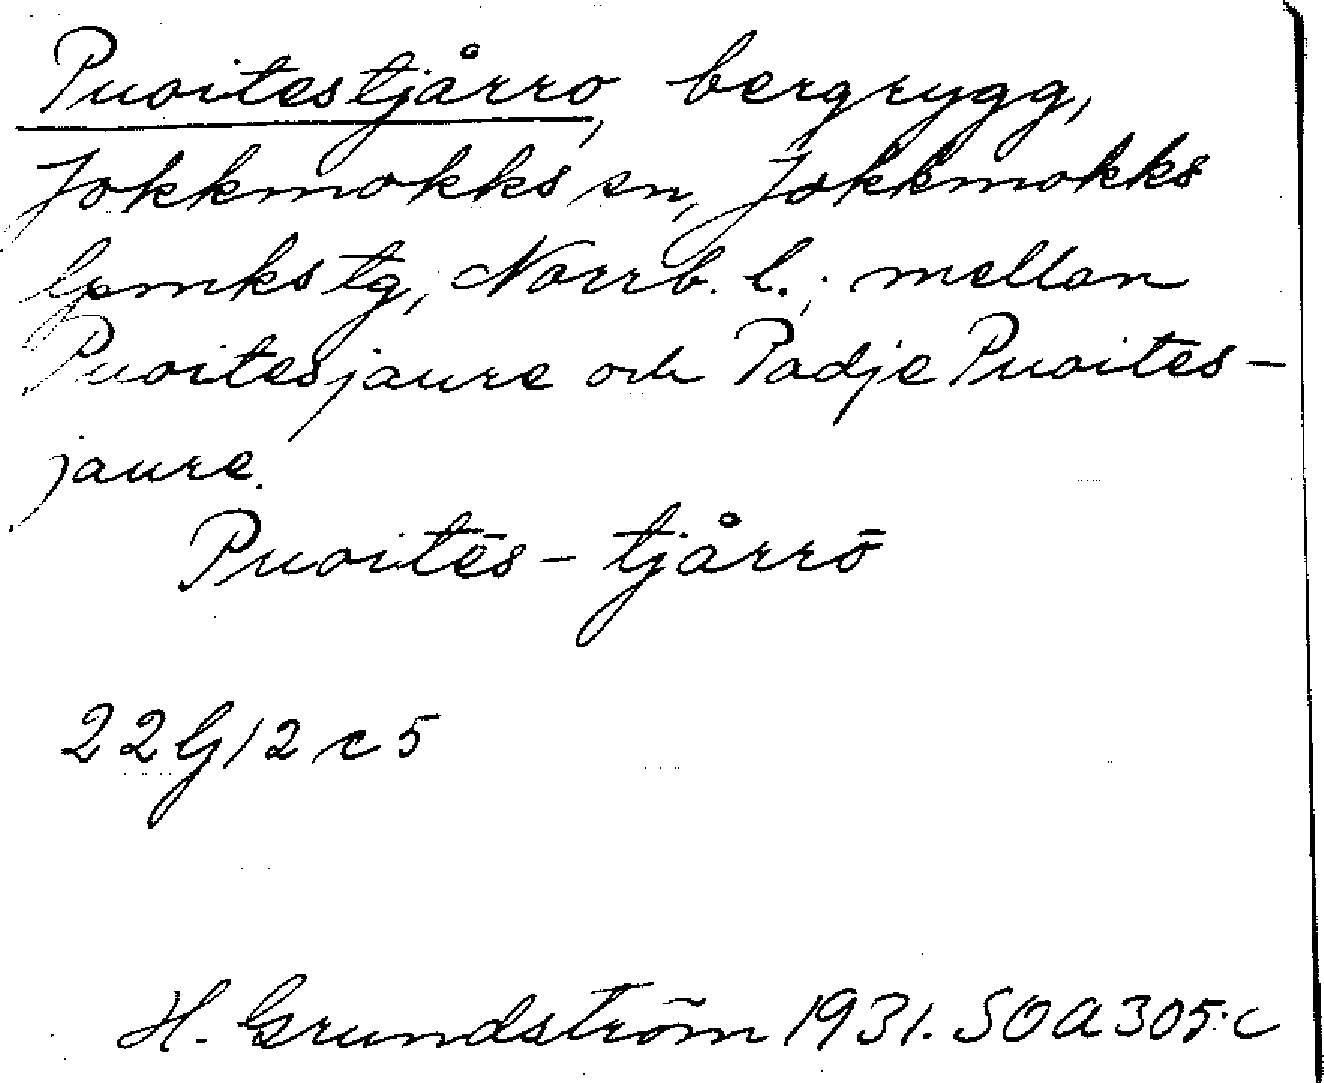 Puoitestjårro, bergrygg,
Jokkmokks sn, Jokkmokks
lpmkstg, Norrb. l.; mellan
Puoitesjaure och Padje Puoites-
jaure.
Puoitēs - tjårrō
22G/2 c 5
H. Grundström 1931. SOA 305:c